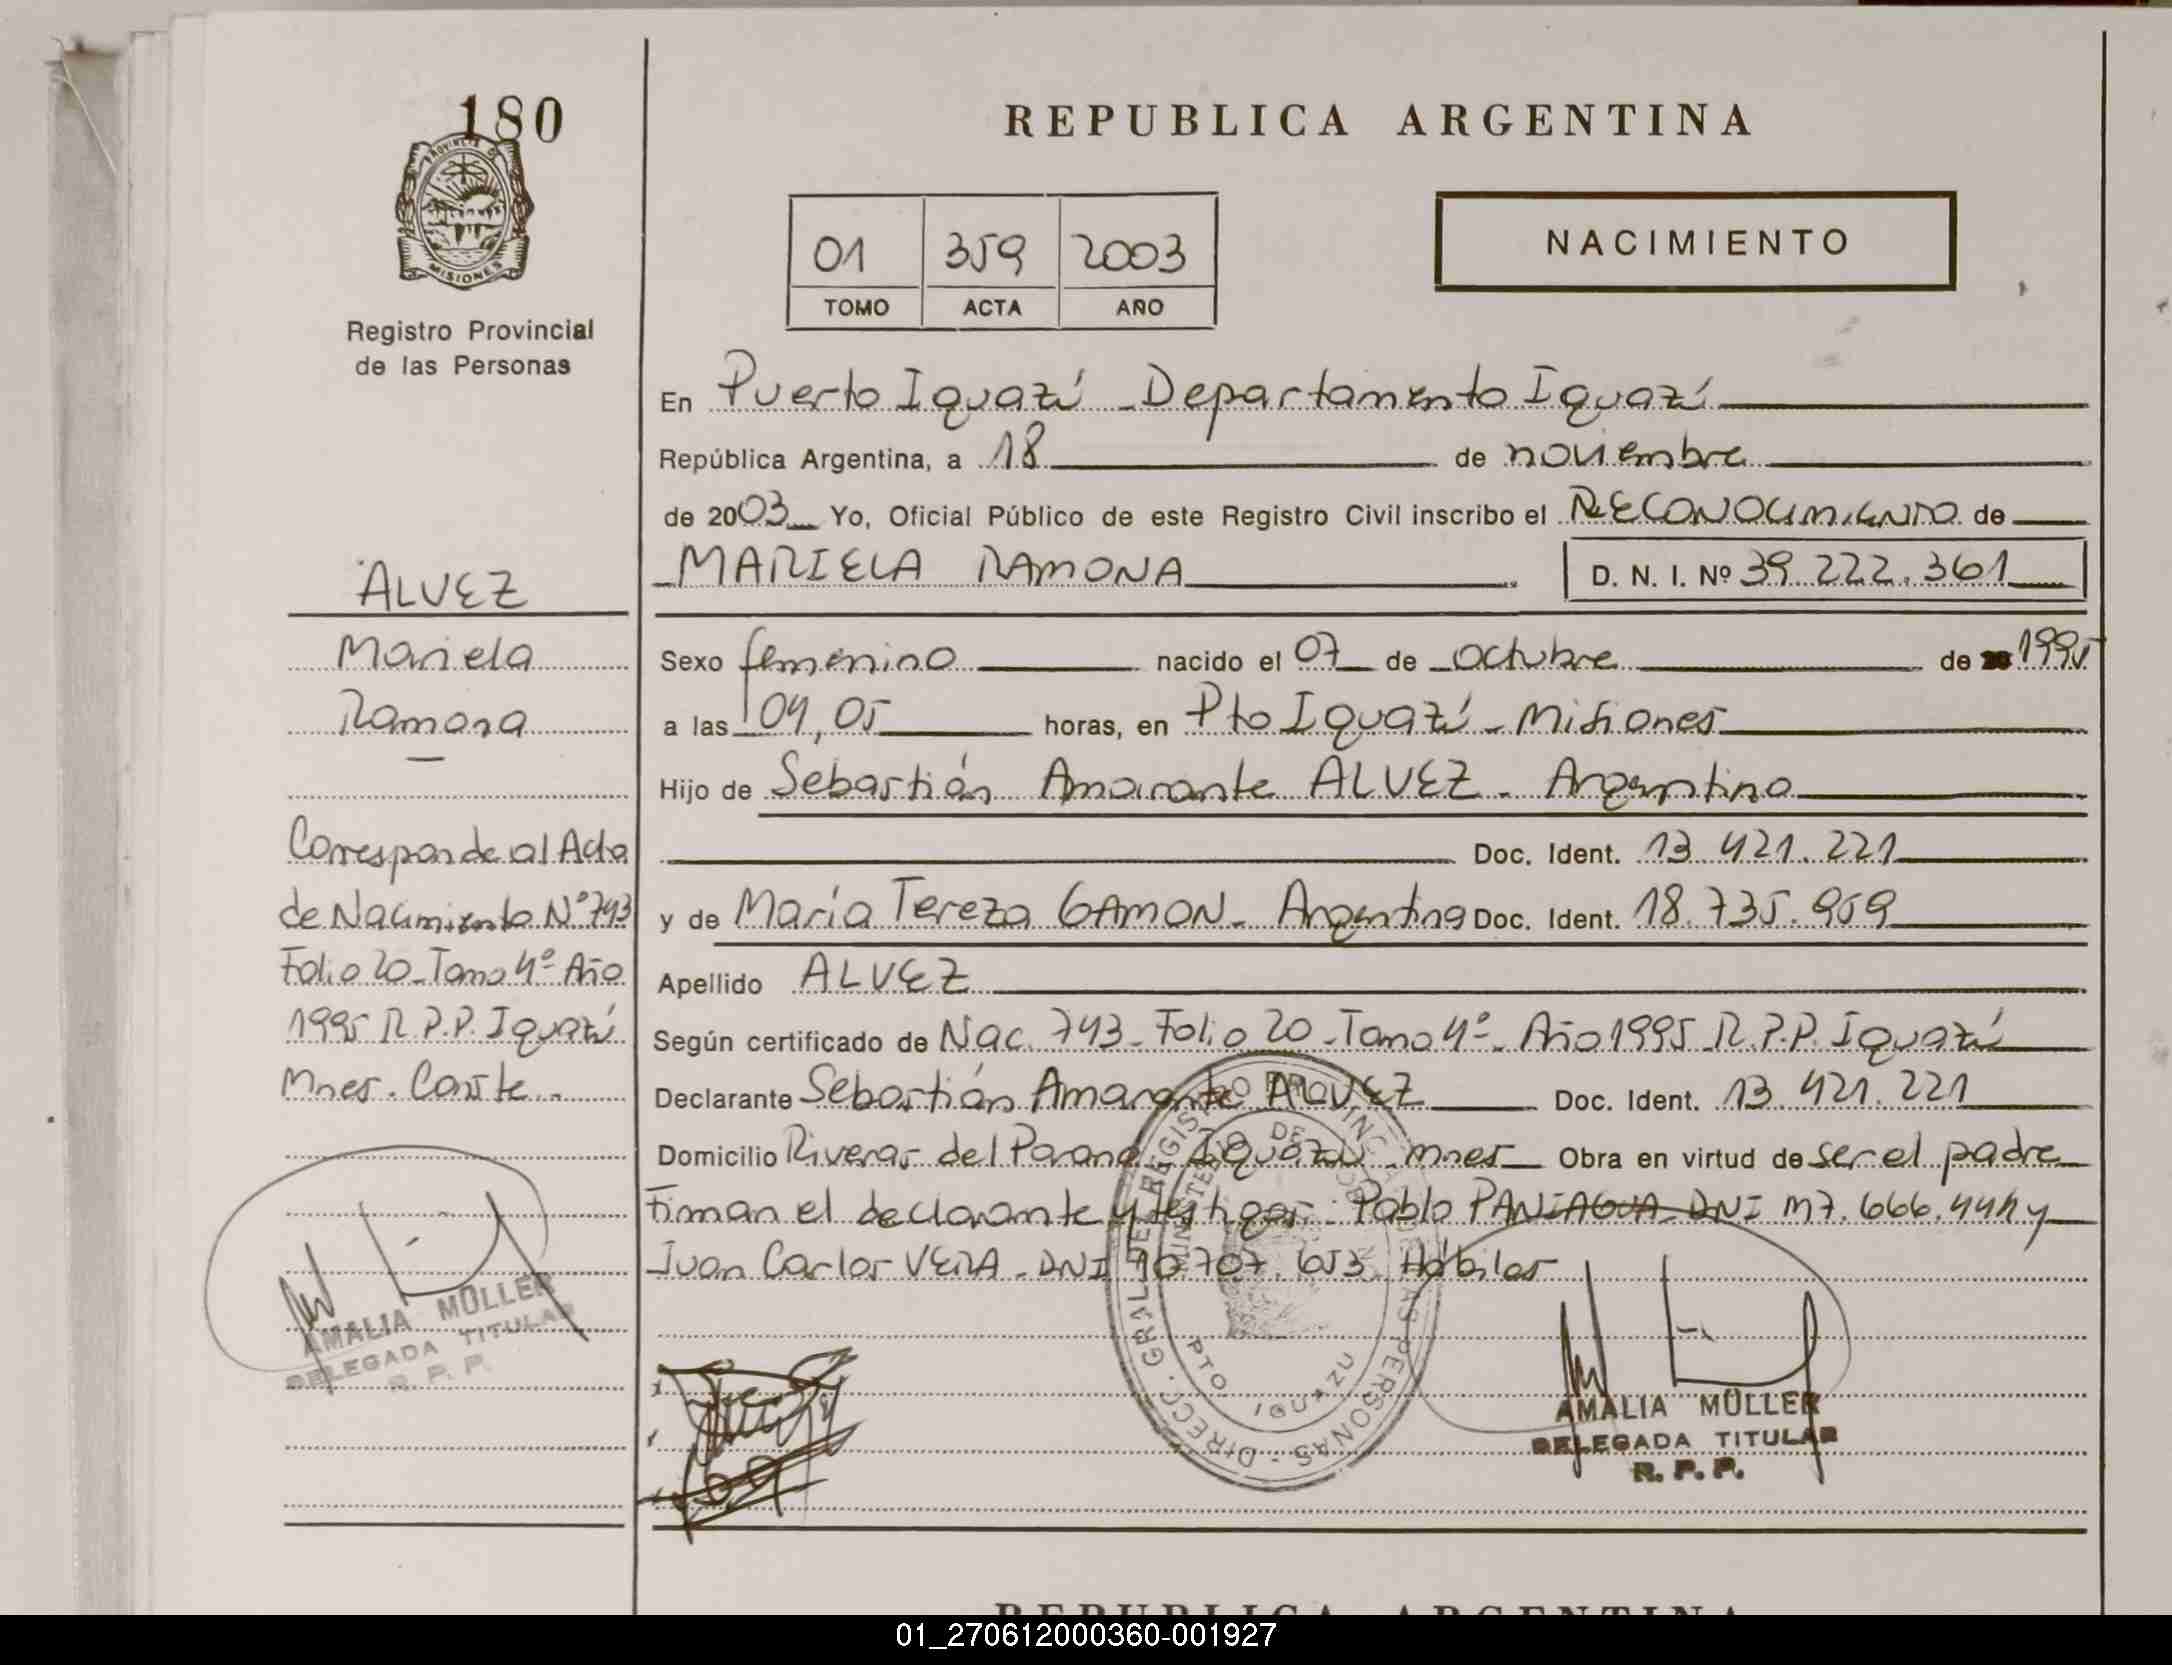 180
PROVINCIA DE
MISIONES
Registro Provincial
de las Personas
REPUBLICA ARGENTINA
01 359 2003
TOMO ACTA AÑO
NACIMIENTO
En Puerto Iguazú - Departamento Iguazú
República Argentina, a 18 de noviembre
de 2003 Yo, Oficial Público de este Registro Civil inscribo el RECONOCIMIENTO de
MARIELA RAMONA D. N. I. Nº 39.222.361
Sexo femenino nacido el 07 de octubre de 1995
a las 04,05 horas, en Pto Iguazú - Misiones
Hijo de Sebastián Amarante ALVEZ - Argentino
Doc. Ident. 13.421.221
y de María Tereza GAMON - Argentina Doc. Ident. 18.735.959
Apellido ALVEZ
Según certificado de Nac. 743 - Folio 20 - Tomo 4º - Año 1995 R.P.P. Iguazú
Declarante Sebastián Amarante ALVEZ Doc. Ident. 13.421.221
Domicilio Riveras del Paraná Iguazú - Mnes Obra en virtud de ser el padre
Firman el declarante y testigos: Pablo PANIAGUA - DNI M7.666.444 y
Juan Carlos VERA - DNI 10.707.653 Hábiles
ALVEZ
Mariela
Ramona
Corresponde al Acta
de Nacimiento Nº 743
Folio 20 - Tomo 4º Año
1995 R.P.P. Iguazú
Mnes. Conste.
AMALIA MÜLLER
DELEGADA TITULAR
R. P. P.
DIRECC. GRAL. DEL REGISTRO PROVINCIAL DE LAS PERSONAS
MINISTERIO DE GOBIERNO
PTO IGUAZU
AMALIA MÜLLER
DELEGADA TITULAR
R. P. P.
REPUBLICA ARGENTINA
01_270612000360-001927